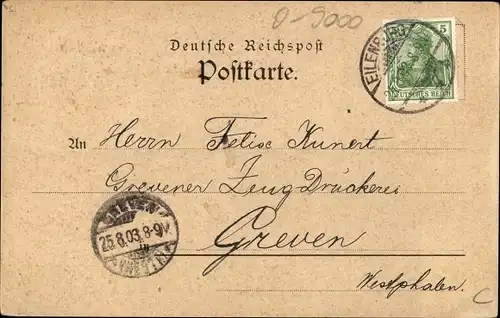 0-9000
Deutsche Reichspost
Postkarte.
5
EILENBURG
DEUTSCHES REICH
An Herrn Felix Kunert
Grevener Zeug Druckerei
Greven
Westphalen.
GREVEN
25.8.03.8-9V.
C